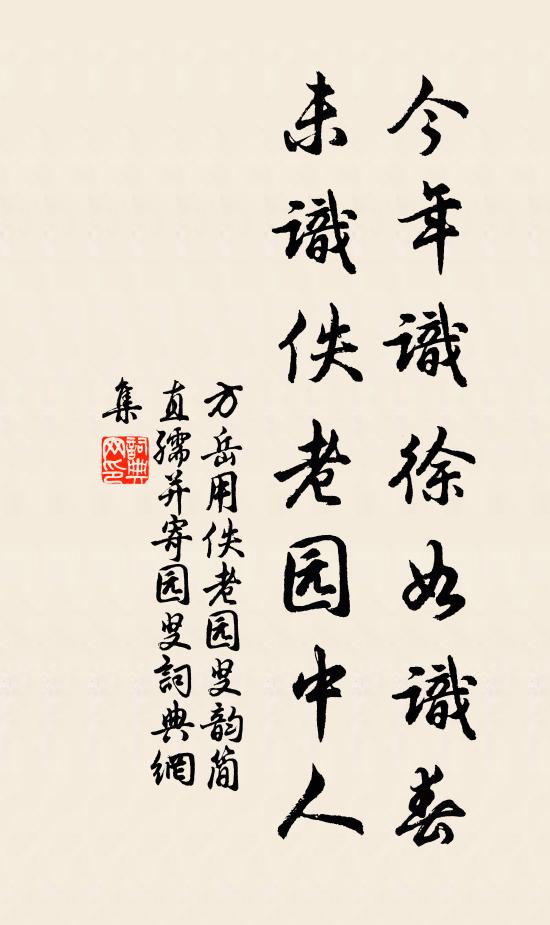 今年識徐如識春
未識佚老园中人
方岳用佚老园叟韵简
直孺并寄园叟詞典網
集
詞典網印